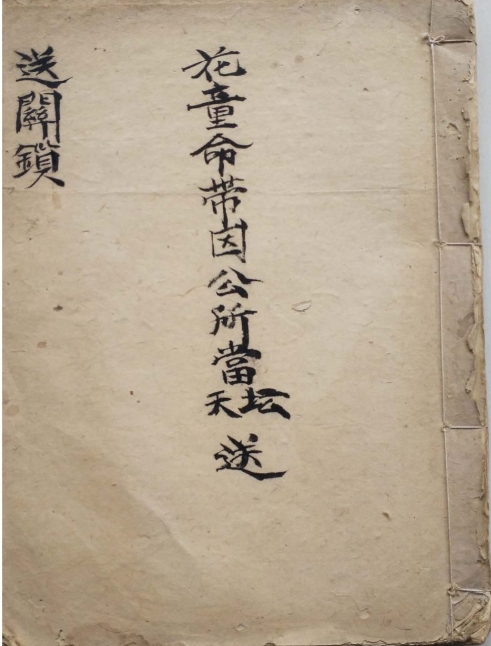 花童命带因公所當天坛送
送關鎖